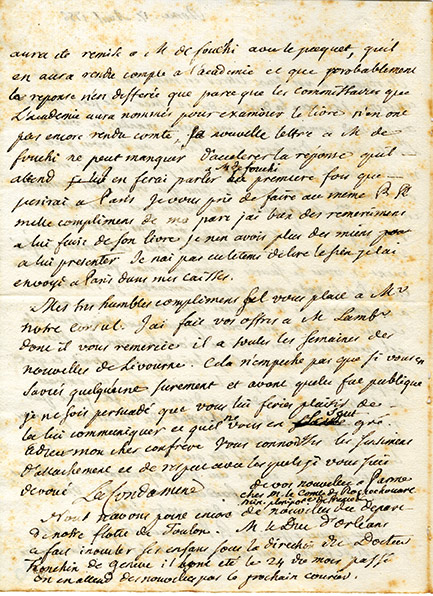 aura été remise a M de fouchi avec le pacquet, quil
en aura rendu compte a l'academie et que probablement
la reponse n'en differe que parce que les commissaires que
L'academie aura nommés pour examiner le livre n'en ont
pas encore rendu comte. nouvelle lettre a M de
fouchi ne peut manquer d'accelerer la reponse qu'il
attend en ferai parler a Mr de fouchi la premiere fois que
j'ecrirai a Paris Je vous prie de faire au meme R P
mille complimens de ma part j'ai bien des remercimens
a lui faire de son livre je n'en avois plus des miens pour
a lui presenter Je n'ai pas eu le tems de lire le sien je l'ai
envoyé a Paris dans mes caisses.
Mes tres humbles complimens s'il vous plait a Mr
notre consul. J'ai fait vos offres a M Lambr
dont il vous remercie il a toutes les semaines des
nouvelles de Livourne. Cela n'empeche pas que si vous en
saviés quelqu'une surement et avant quelle fut publique
je ne sois persuadé que vous lui feriés plaisir de
la lui communiquer et quil ne vous en sçut gré.
adieu mon cher confrere vous connoissés les sentimens
d'attachement et de respect avec lesquels je vous suis
devoué La Condamine
de vos nouvelles a Parme
chés M. le Comte de Rochechouart
min. plenipot. de France
Nous n'avons point encore de nouvelles du depart
de notre flotte de Toulon. M. le Duc d'Orleans
a fait inoculer ses enfans sous la direction du Docteur
Tronchin de Geneve ils ont été le 24 du mois passé
On en attend des nouvelles par le prochain courier.